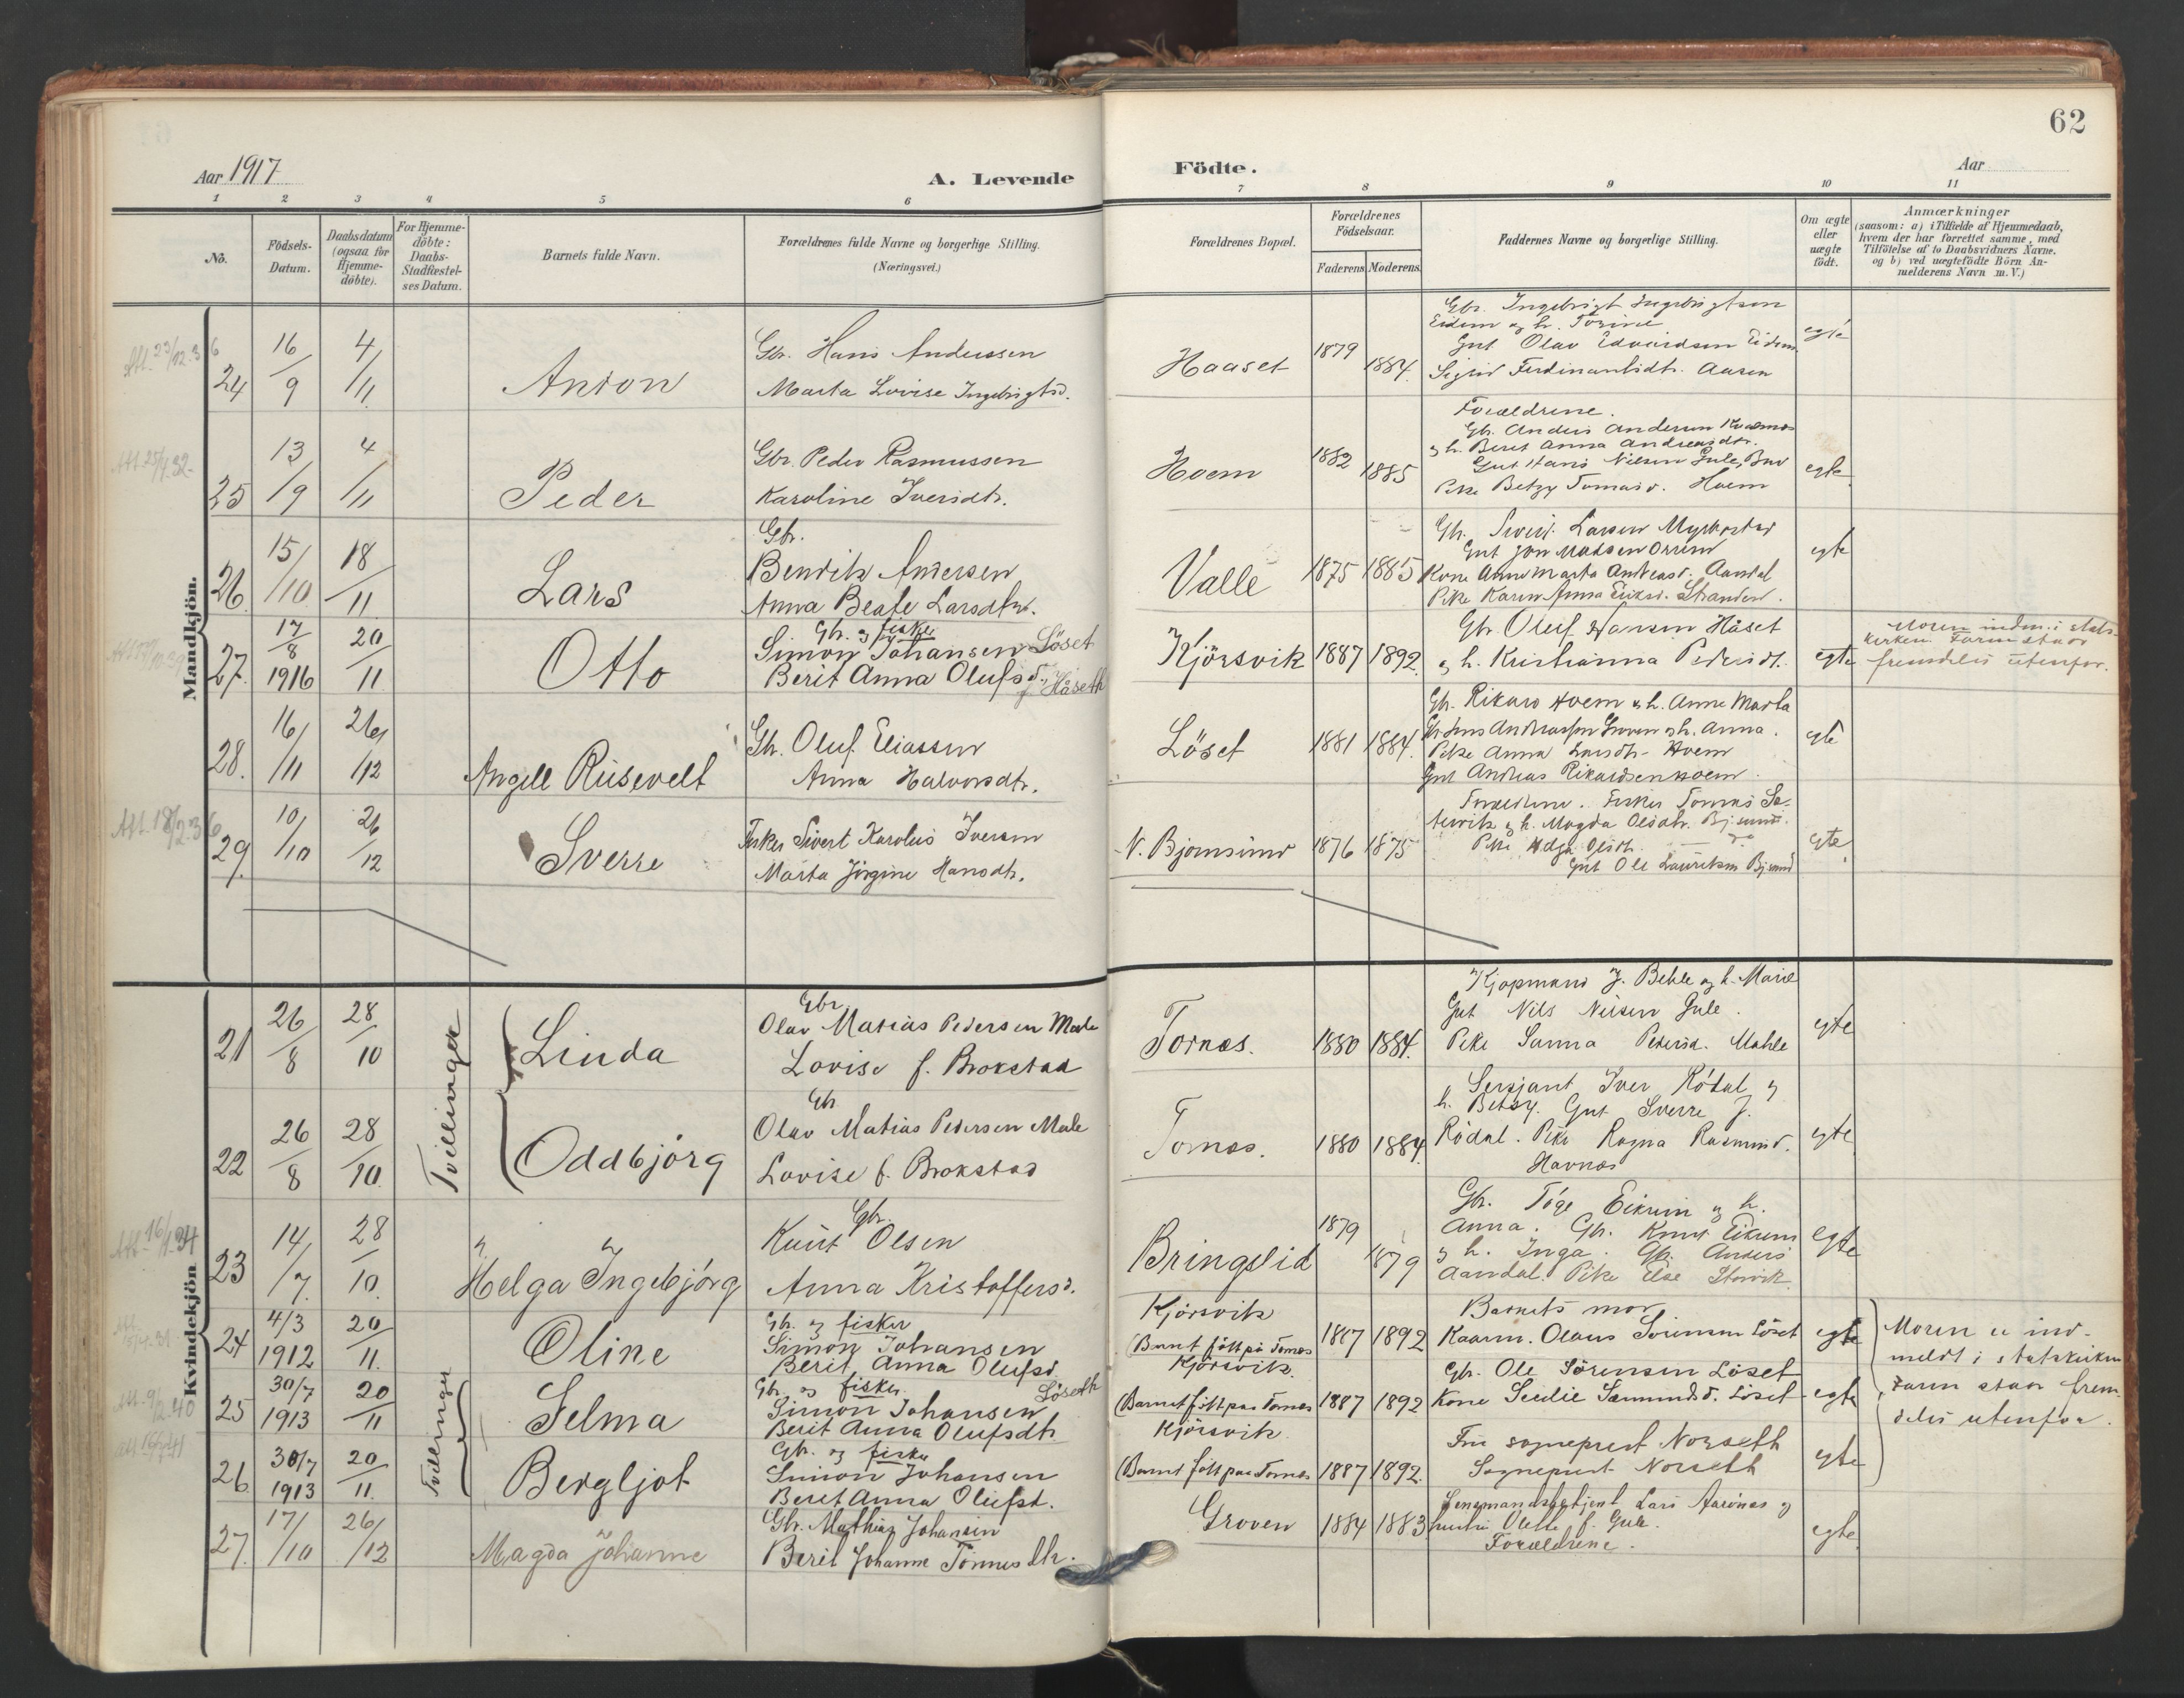 62
Aar 1917
A. Levende
Födte.
Aar
1 2 3 4 5 6 7 8 9 10 11
No.
Födsels-Datum.
Daabsdatum (ogsaa for Hjemme-döbte).
For Hjemme-döbte: Daabs-Stadfæstel-ses Datum.
Barnets fulde Navn.
Forældrenes fulde Navne og borgerlige Stilling.
(Næringsvei.)
Forældrenes Bopæl.
Forældrenes Födselsaar.
Faderens Moderens
Faddernes Navne og borgerlige Stilling.
Om ægte eller uægte födt.
Anmærkninger
(saasom: a) i Tilfælde af Hjemmedaab,
hvem der har forrettet samme, med
Tilföielse af to Daabsvidners Navne.
og b) ved uægtefödte Börn An-
melderens Navn m. V.)
Mandkjön.
24 16/9 4/11 Anton
Gbr. Hans Anderssen
Marta Lovise Ingebrigtsd.
Haaset 1879 1884.
Gbr. Ingebrigt Ingebrigtsen
Eidem og h. Torine
Gut Olav Edvardsen Eidem
Sigrid Ferdinantsdtr. Aasen
egte
25 13/9 4/11 Peder
Gbr. Peder Rasmussen
Karoline Iversdtr.
Hoem 1882 1885
Forældrene.
Gb. Anders Andersen
og h. Beret Anna Andreasdtr.
Gut Hans Nilsen Gule, Bud
Pike Betzy Tomasd. Hoem
egte
26 15/10 18/11 Lars
Gbr.
Bendik Andersen
Anna Beate Larsdtr.
Valle 1875 1885
Gbr. Sivert Larsen Myrbostad
Gut Jon Madsen
Kone Anne Marta Andreasd. Aandal
Pike Karen Anna Eriksd. Stranden.
egte
27. 17/8 1916 20/11 Otto
Gbr. og fisker
Simon Johansen Löset
Berit Anna Olufsd., f. Håseth
Kjörsvik 1887 1892
Gbr. Oluf Hansen Håset
og h. Kristianna Pedersdt.
egte
Moren indm. i stats-
kirken. Faren staar
fremdeles utenfor.
28. 16/11 26/12 Angell Rüsevelt
Gbr. Oluf Eliassen
Anna Halvorsdtr.
Löset 1881 1884.
Gbr. Rikard Hoem og h. Anne Marta
Gbr. Lars Andreassen Groven og h. Anna.
Pike Anna Larsdtr. Hoem
Gut Andreas Rikardsen Hoem.
egte
29. 10/10 26/12 Sverre
Fisker Sivert Karolus Iversen
Marta Jörgine Hansdtr.
N. Bjørnsund 1876 1875
Forældrene. Fisker Tomas
og h. Magda Olsdtr. Bj.sund.
Pike Helga Olsdtr.
Gut Ole Lauritsen Bj.sund
egte
Kvindekjön
Tvillinger
21 26/8 28/10 Linda
Gbr.
Olav Matias Pedersen Male
Lovise f. Brokstad
Tornes. 1880 1884.
Kjøpmand J. Behle og h. Marie
Gut Nils Nilsen Gule.
Pike Sanna Pedersd. Mahle
egte
22 26/8 28/10 Oddbjörg
Gbr.
Olav Matias Pedersen Male
Lovise f. Brokstad
Tornes. 1880 1884
Sersjant Iver Rödal og
h. Betsy. Gut Sverre J.
Rödal. Pike Ragna Rasmusd.
Havnes
egte
23 14/7 28/10 Helga Ingebjörg
Gbr.
Knut Olsen
Anna Kristoffersd.
Bringslid 1879 1879
Gbr. Töge Eikrem og h.
Anna. Gbr. Knut Eikrem
og h. Inga. Gbr. Anders
Aandal. Pike Else
egte
24 4/3 1912 20/11 Oline
Gbr. og fisker
Simon Johansen
Berit Anna Olufsd.
Kjörsvik
(Barnet född på Tornes 1887 1892
Barnets mor,
Kaarm. Olaus Sörensen Löset
egte
Moren er ind-
meldt i statskirken
Faren staar frem-
deles utenfor.
Tvillinger
25 30/7 1913 20/11 Selma
Gbr. og fisker Löseth
Simon Johansen
Berit Anna Olufsdt.
Kjörsvik.
(Barnet född paa Tornes 1887 1892
Gbr. Ole Sörensen Löset
Kone Sedie Samundsd. Löset
egte
26 30/7 1913 20/11 Bergljot
Gbr. og fisker
Simon Johansen
Beret Anna Olufsd.
Kjörsvik
(Barnet född paa Tornes 1887 1892.
Fru sogneprest Norseth
Sogneprest Norseth
egte
27. 17/10 26/12 Magda Johanne
Gbr. Mathias Johansen
Berit Johanne Tönnesdtr.
Groven 1884 1883
Lensmandsbetjent Lars Aarönes og
hustru Olette f. Gule.
Forældrene.
egte